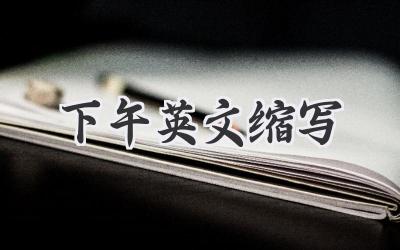 下午英文缩写